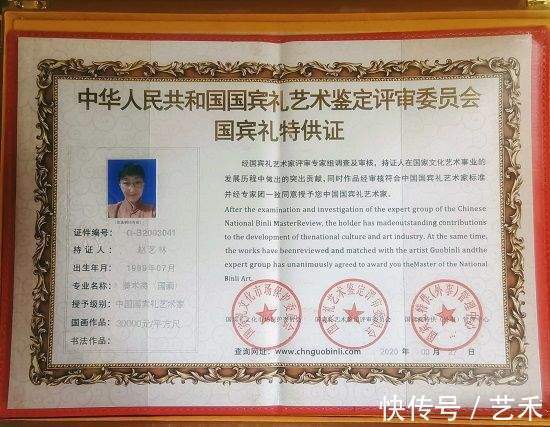 中华人民共和国国宾礼艺术鉴定评审委员会
国宾礼特供证
经国宾礼艺术家评审专家组调查及审核，持证人在国家文化艺术事业的
发展历程中做出的突出贡献，同时作品经审核符合中国国宾礼艺术家标准
并经专家团一致同意授予您中国国宾礼艺术家。
After the examination and investigation of the expert group of the Chinese
National Binli MasterReview, the holder has madeoutstanding contributions
to the development of thenational culture and art industry. At the same time,
the works have beenreviewed and matched with the artist Guobinli and
theexpert group has unanimously agreed to award you theMaster of the National
Binli Art.
证件编号： G-B2003041
持 证 人： 赵艺林
出生年月： 1989年07月
专业名称： 美术类（国画）
授予级别： 中国国宾礼艺术家
国画作品： 30000元/平方尺
书法作品：
国宾礼艺术鉴定评审委员会
查询网址：www.chnguobinli.com
2020 年
快传号 / 艺禾